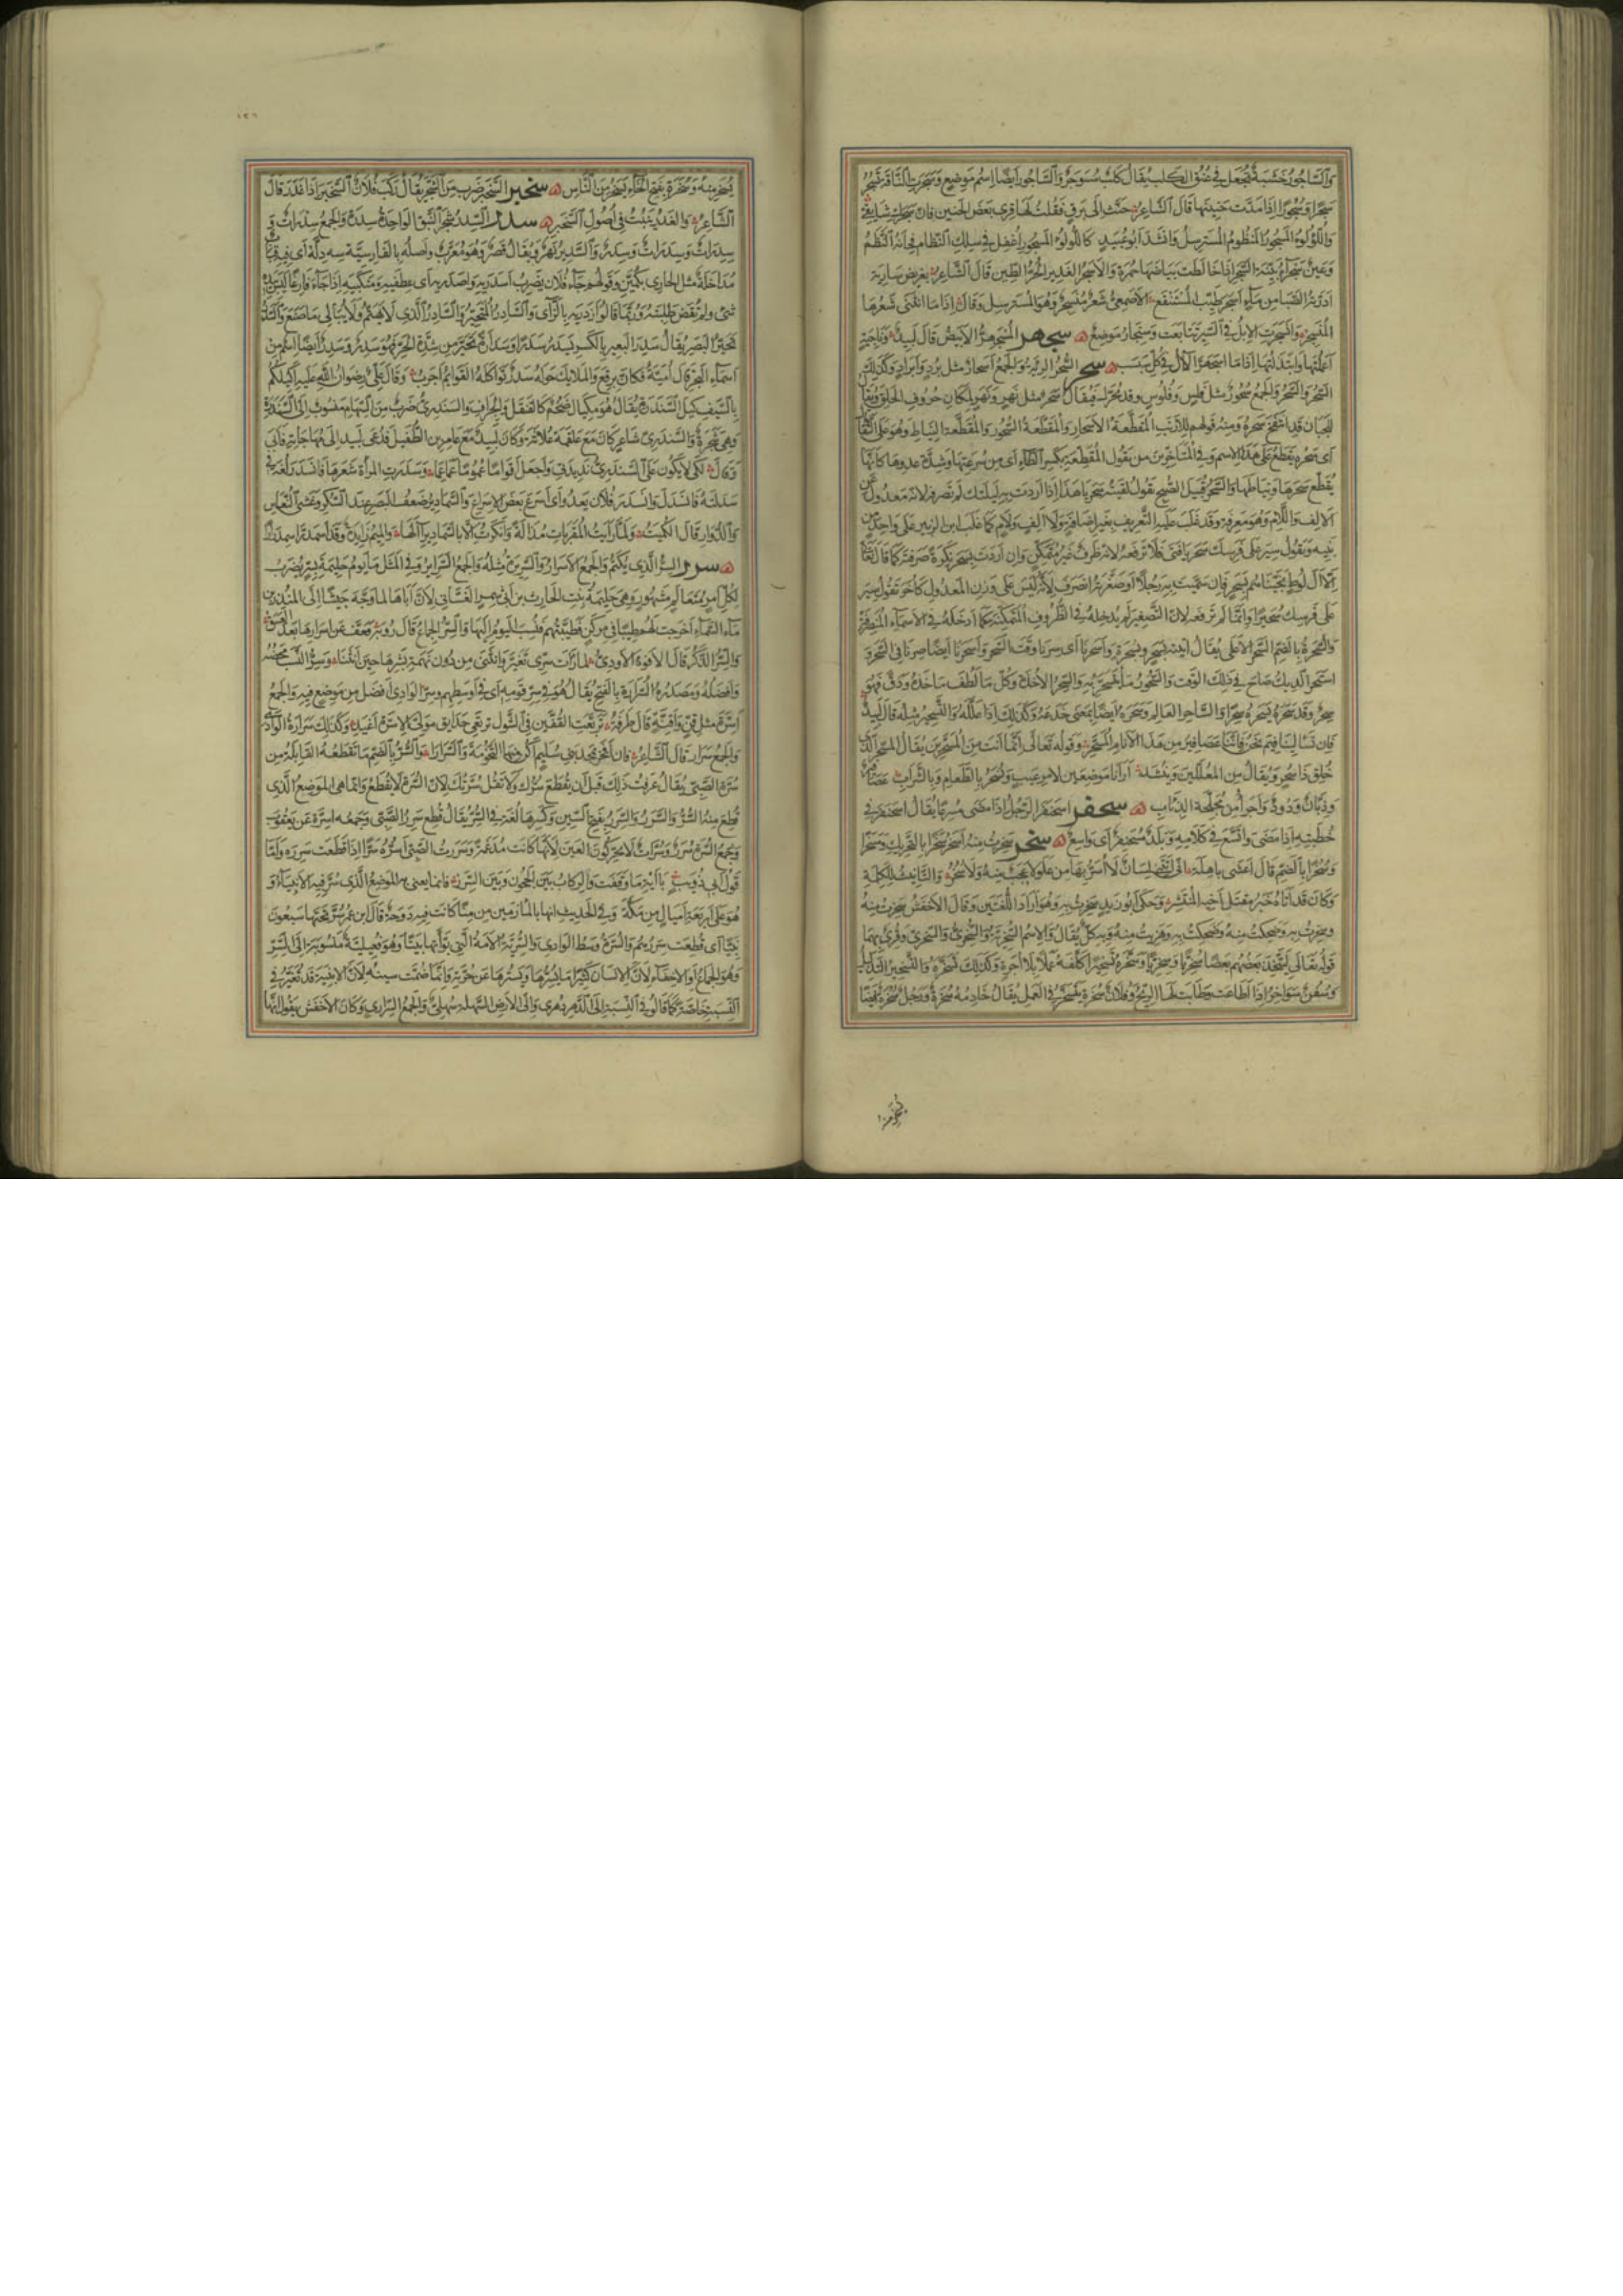 والساجور خشبة تجعل في عنق الكلب يقال كلب مسوجر والساجور ايضا اسم موضع وسجرت الناقة تسجر
سجرا وسجورا اذا مدت حنينها قال الشاعر حنت الى برق فقلت لها قري بعض الحنين فان سجرك شايقي
واللؤلؤ المسجور المنظوم المسترسل وانشد ابو عبيد كاللؤلؤ المسجور اغفل في سلك النظام فخانه النظم
وعين سجراء بينة السجر اذا خالط بياضها حمرة والاسجر الغدير الحر الطين قال الشاعر بغريض سارية
ادرته الصبا من ماء اسجر طيب المستنقع الاصمعي شعر منسجر وهو المسترسل وقال اذا ما انثنى شعرها
المنسجر وانسجرت الابل في السير تتابعت وسنجار موضع سجهر المسجهر الابيض قال لبيد وناجية
اعملتها وابتذلتها اذا ما اسجهر الال في كل سبسب سحر السحر الرية والجمع اسحار مثل برد وابراد وكذلك
السحر والسحر والجمع سحور مثل فلس وفلوس وقد يحرك فيقال سحر مثل نهر ونهر لمكان حروف الحلق ويقال
للجبان قد انتفخ سحره ومنه قولهم للارنب المقطعة الاسحار والمقطعة السحور والمقطعة النياط وهو على التفاؤل
اي سحره يقطع على هذا الاسم وفي المتاخرين من يقول المقطعة بكسر الطاء اي من سرعتها وشدة عدوها كانها
يقطع سحرها ونياطها والسحر قبيل الصبح تقول لقيته سحر يا هذا اذا اردت به سحر ليلتك لم تصرفه لانه معدول عن
الالف واللام وهو معرفة وقد غلب عليه التعريف بغير اضافة ولا الف ولام كما غلب ابن الزبير على واحد من
بنيه وتقول سير على فرسك سحر يا فتى فلا ترفعه لانه ظرف غير متمكن وان اردت بسحر نكرة صرفته كما قال تعالى
الا ال لوط نجيناهم بسحر فان سميت به رجلا او صغرته انصرف لانه ليس على وزن المعدول كاخر تقول سير
على فرسك سحيرا وانما لم ترفعه لان التصغير لم يدخله في الظروف المتمكنة كما ادخله في الاسماء المنصرفة
والسحرة بالضم السحر الاعلى يقال اتيته بسحر وبسحرة واسحرنا اي سرنا وقت السحر واسحرنا ايضا صرنا في السحر و
استحر الديك صاح في ذلك الوقت والسحور ما يتسحر به والسحر الاخذة وكل ما لطف ماخذه ودق فهو
سحر وقد سحره يسحره سحرا والساحر العالم وسحره ايضا بمعنى خدعه وكذلك اذا علله والتسحير مثله قال لبيد
فان تسالينا فيم نحن فاننا عصافير من هذا الانام المسحر وقوله تعالى انما انت من المسحرين يقال المسحر الذي
خلق ذا سحر ويقال من المعللين وينشد ارانا موضعين لامر غيب ونسحر بالطعام وبالشراب عصافير
وذبان ودود واجرأ من مجلحة الذئاب سحفر اسحنفر الرجل اذا مضى مسرعا يقال اسحنفر في
خطبته اذا مضى واتسع في كلامه وبلد مسحنفر اي واسع سخر سخرت منه اسخر سخرا بالتحريك ومسخرا
وسخرا بالضم قال اعشى باهلة اني اتتني لسان لا اسر بها من علو لا عجب منه ولا سخر والتانيث للكلمة
وكان قد اتاه خبر مقتل اخيه المنتشر وحكى ابو زيد سخرت به وهو اردا اللغتين وقال الاخفش سخرت منه
وسخرت به وضحكت منه وضحكت به وهزئت منه وبه كل يقال والاسم السخرية والسخري والسخري وقرئ بهما
قوله تعالى ليتخذ بعضهم بعضا سخريا وسخريا وسخره تسخيرا كلفه عملا بلا اجرة وكذلك تسخره والتسخير التذليل
وسفن سواخر اذا اطاعت وطابت لها الريح وفلان سخرة يتسخر في العمل يقال خادمه سخرة ورجل سخرة ايضا
يسخر منه
١٢٦
يسخر منه وسخرة بفتح الخاء يسخر من الناس سخبر السخبر ضرب من الشجر يقال ركب فلان السخبر اذا غدر قال
الشاعر والغدر ينبت في اصول السخبر سدر السدر شجر النبق الواحدة سدرة والجمع سدرات و
سدرات وسدرات وسدر والسدير نهر ويقال قصر وهو معرب واصله بالفارسية سه دلة اي فيه قباب
مداخلة مثل الحاري بكمين وقولهم جاء فلان يضرب اسدريه واصدريه اي عطفيه ومنكبيه اذا جاء فارغا ليس بيده
شيء ولم تقض طلبته وربما قالوا ازدريه بالزاي والسادر المتحير والسادر الذي لا يهتم ولا يبالي ما صنع والسدر
تحير البصر يقال سدر البعير بالكسر يسدر سدرا وسدارة تحير من شدة الحر فهو سدر وسدر ايضا اسم من
اسماء البحر قال امية فكان برقع والملايك حوله سدر تواكله القوائم اجرب وقال علي رضوان الله عليه اكيلكم
بالسيف كيل السندرة يقال هو مكيال ضخم كالقنقل والجراف والسندري ضرب من السهام منسوب الى السندرة
وهي شجرة والسندري شاعر كان مع علقمة بن علاثة وكان لبيد مع عامر بن الطفيل فدعي لبيد الى مهاجاته فابى
وقال لكي لا يكون السندري نديدتي واجعل اقواما عموما عماعما وسدرت المراة شعرها فانسدر لغة في
سدلته فانسدل وانسدر فلان يعدو اي اسرع بعض الاسراع والسمادير ضعف البصر عند السكر وغشي النعاس
والدوار قال الكميت ولما رايت المقربات مذالة وانكرت الا بالسمادير الها والميم زايدة وقد اسمدر اسمدرارا
سرر السر الذي يكتم والجمع الاسرار والسريرة مثله والجمع السراير وفي المثل ما يوم حليمة بسر يضرب
لكل امر متعالم مشهور وهي حليمة بنت الحارث بن ابي شمر الغساني لان اباها لما وجه جيشا الى المنذر بن
ماء السماء اخرجت لهم طيبا في مركن فطيبتهم به فنسب اليوم اليها والسر الجماع قال رؤبة فعف عن اسرارها بعد العسق
والسر الذكر قال الافوه الاودي لما رات سري تغير وانثنى من دون نهمة بشرها حين انثنا وسر النسب محضه
وافضله ومصدره السرارة بالفتح يقال هو في سر قومه اي في اوسطهم وسر الوادي افضل من موضع فيه والجمع
اسرة مثل قن واقنة قال طرفة تربعت القفين في الشول ترتعي حدايق مولي الاسرة اغيد وكذلك سرارة الوادي
والجمع سرار قال الشاعر فان افخر بمجد بني سليم اكن منها التخومة والسرارا والسر بالضم ما تقطعه القابلة من
سرة الصبي يقال عرفت ذلك قبل ان يقطع سرك ولا تقل سرتك لان السرة لا تقطع وانما هي الموضع الذي
قطع منه السر والسرر والسرر بفتح السين وكسرها لغة في السر يقال قطع سرر الصبي وجمعه اسرة عن يعقوب
وجمع السرة سرر وسرات لا يحركون العين لانها كانت مدغمة وسررت الصبي اسره سرا اذا قطعت سرره واما
قول ابي ذؤيب باية ما وقفت والركاب بين الحجون وبين السرر فانما يعني به الموضع الذي سر فيه الانبياء و
هو على اربعة اميال من مكة وفي الحديث انها بالمازمين من منى كانت فيه دوحة قال ابن عمر سر تحتها سبعون
نبيا اي قطعت سررهم والسرة وسط الوادي والسرية الامة التي بوأتها بيتا وهو فعلية منسوبة الى السر
وهو الجماع او الاخفاء لان الانسان كثيرا ما يسرها ويسترها عن حرته وانما ضمت سينه لان الابنية قد تغير في
النسبة خاصة كما قالوا في النسبة الى الدهر دهري والى الارض السهلة سهلي والجمع السراري وكان الاخفش يقول انها